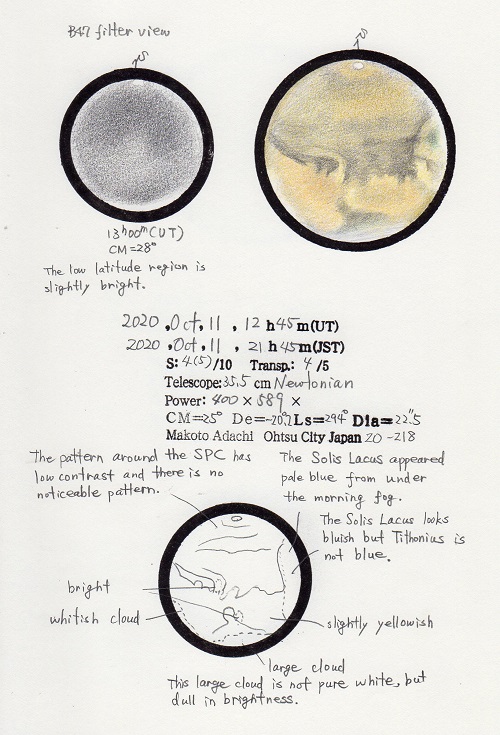 B47 filter view
S
S
13h00m(UT)
CM=28°
The low latitude region is
slightly bright.
2020 ,Oct, 11 , 12 h45m(UT)
2020 ,Oct, 11 , 21 h45m(JST)
S: 4(5)/10 Transp.: 4 /5
Telescope: 35.5 cm Newtonian
Power: 400 × 589 ×
CM=25° De=-20.°2 Ls=294° Dia=22."5
Makoto Adachi Ohtsu City Japan 20-218
The pattern around the SPC has
low contrast and there is no
noticeable pattern.
The Solis Lacus appeared
pale blue from under
the morning fog.
The Solis Lacus looks
bluish but Tithonius is
not blue.
bright
whitish cloud
slightly yellowish
large cloud
This large cloud is not pure white, but
dull in brightness.